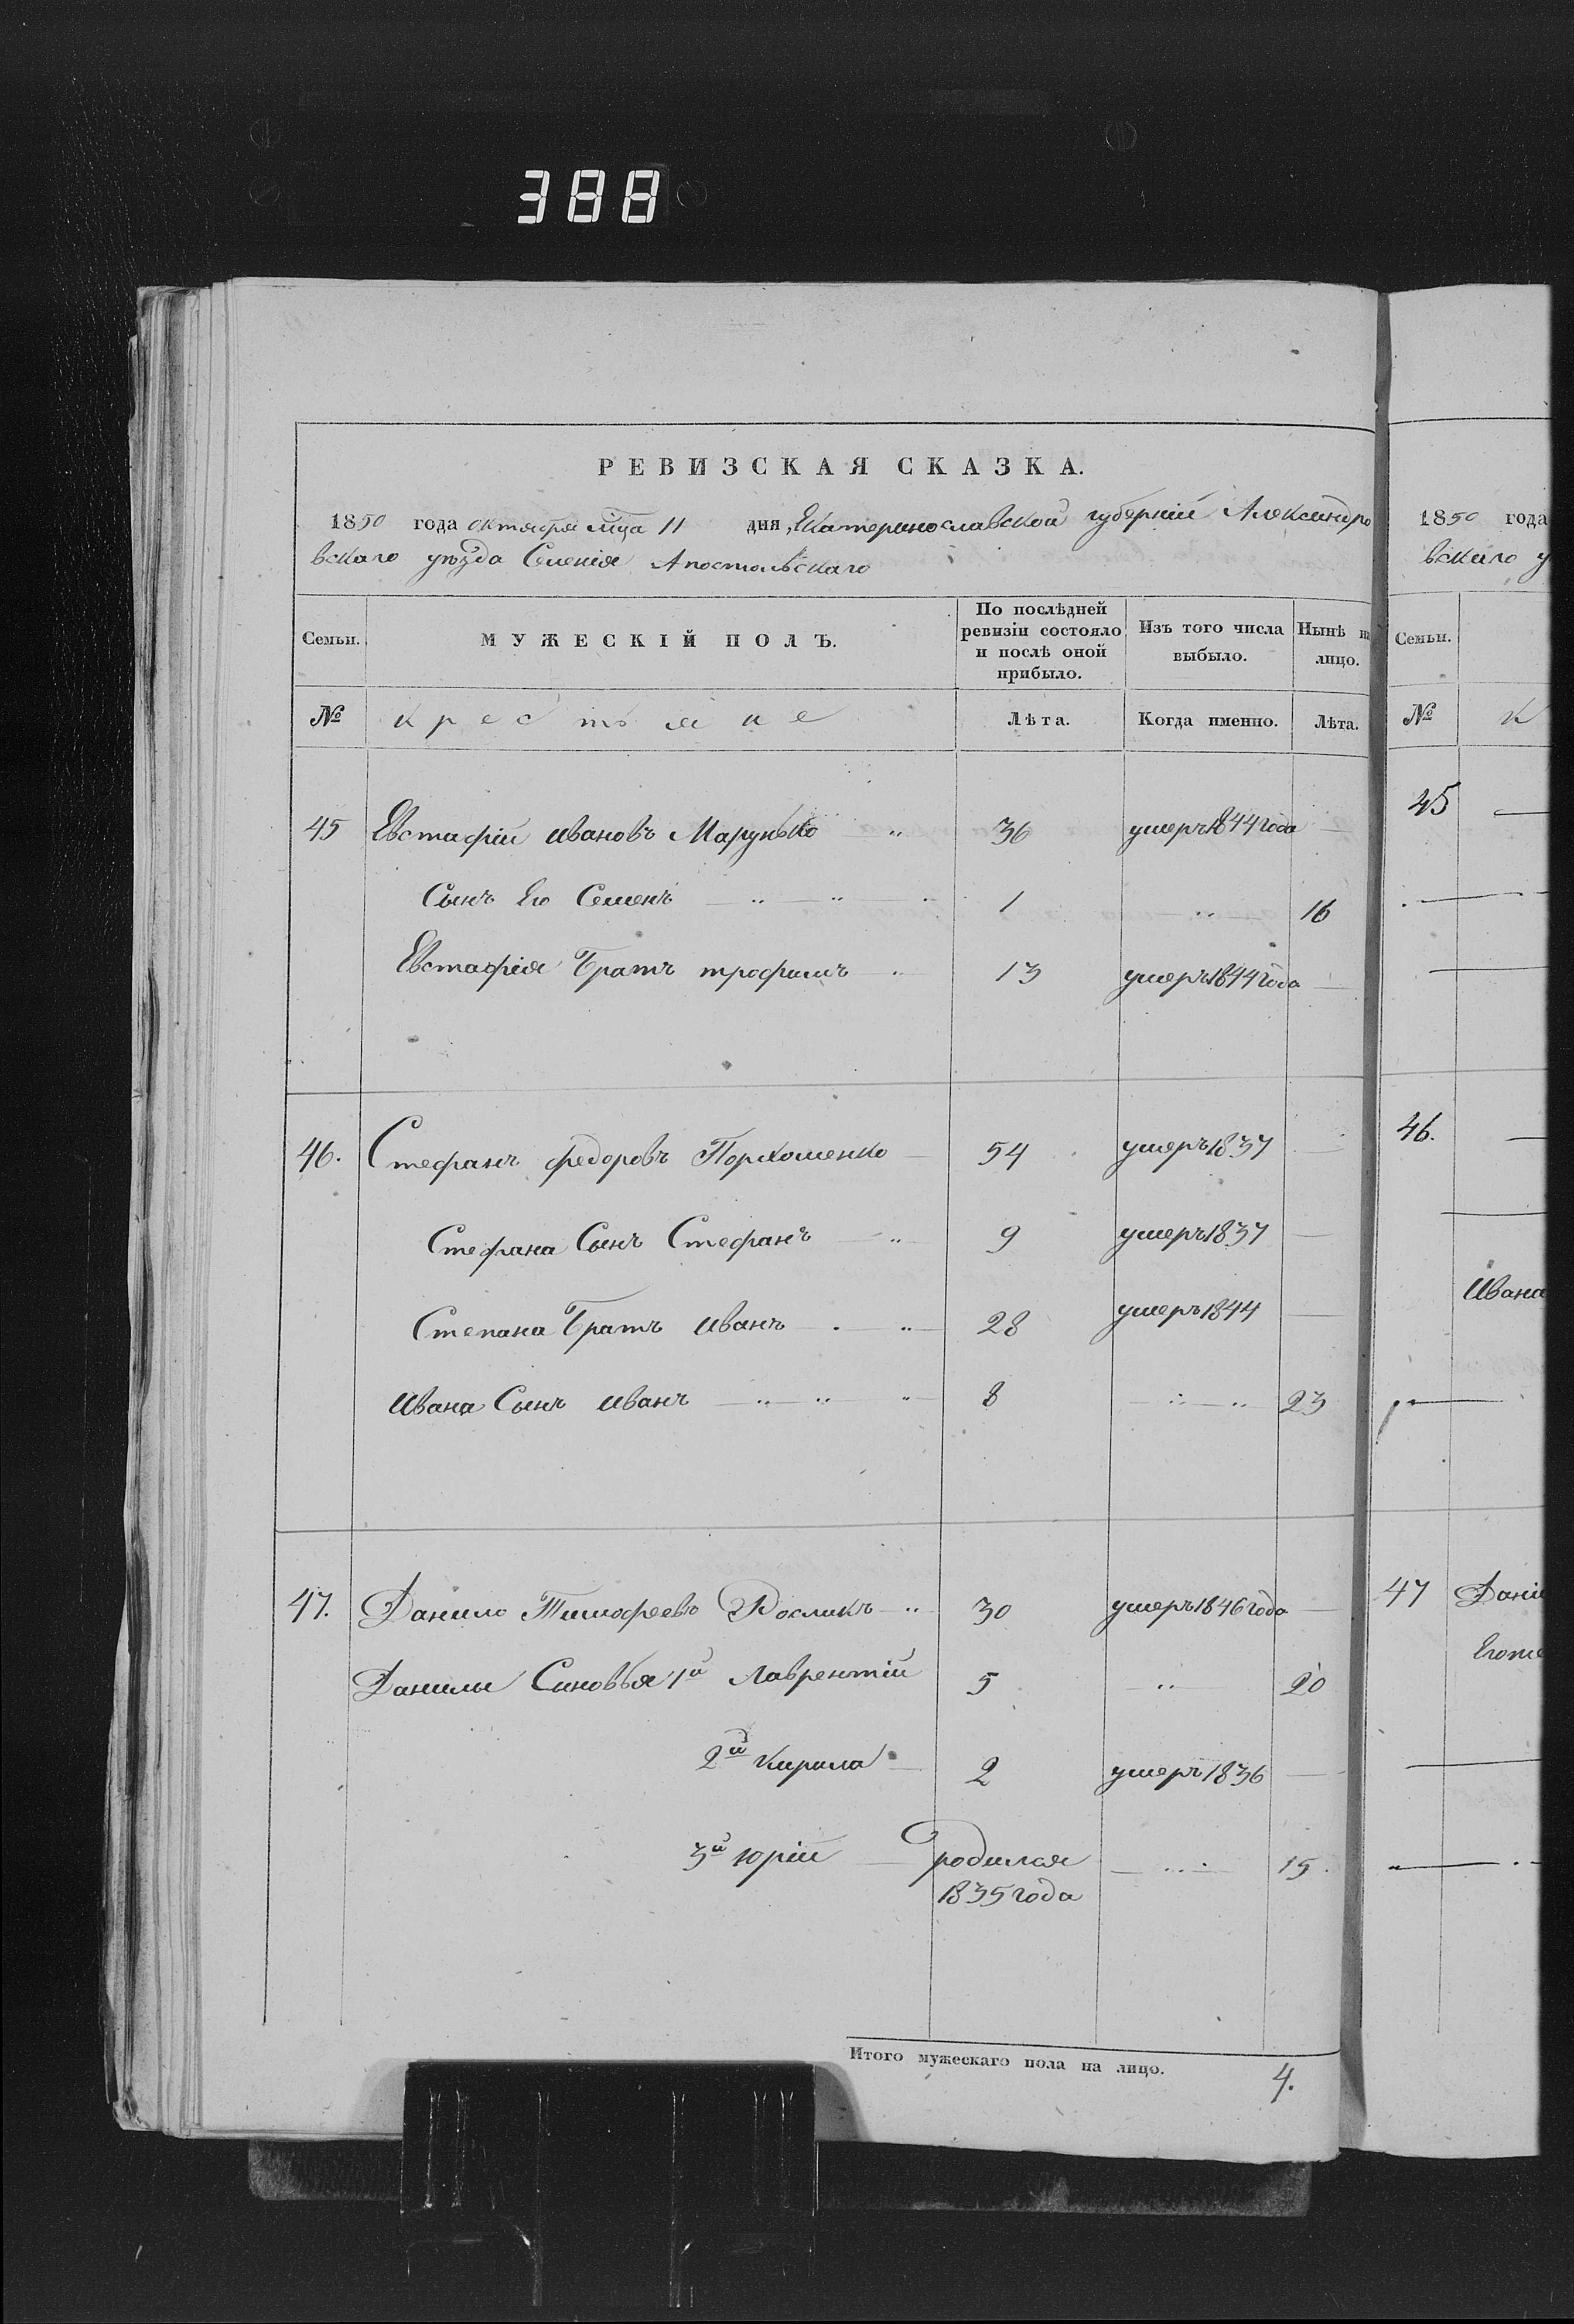 388
РЕВИЗСКАЯ СКАЗКА.
1850 года октября мца 11 дня, Екатеринославской губерніи Александро
вскаго уѣзда Селенія Апостольскаго
Семьи.
МУЖЕСКІЙ ПОЛЪ.
По послѣдней ревизіи состояло и послѣ оной прибыло.
Изъ того числа выбыло.
Нынѣ на лицо.
№ крестьяне Лѣта. Когда именно. Лѣта.
45 Евстафій Ивановъ Марунько 36 умеръ 1844 года
Сынъ Его Семенъ 1 16
Евстафія Братъ трофимъ 13 умеръ 1844 года
46. Стефанъ федоровъ Порхоменко 54 умеръ 1837
Стефана Сынъ Стефанъ 9 умеръ 1837
Степана Братъ Иванъ 28 умеръ 1844
Ивана Сынъ Иванъ 8 23
47. Данило Тимофеевъ Росликъ 30 умеръ 1846 года
Данилы Сыновья 1й Лаврентій 5 20
2й Кирила 2 умеръ 1836
3й Юрій родился 15
1835 года
Итого мужескаго пола на лицо. 4.
1850 года
вскаго у
Семьи.
№ К
45
46.
Ивана
47 Дани
Его